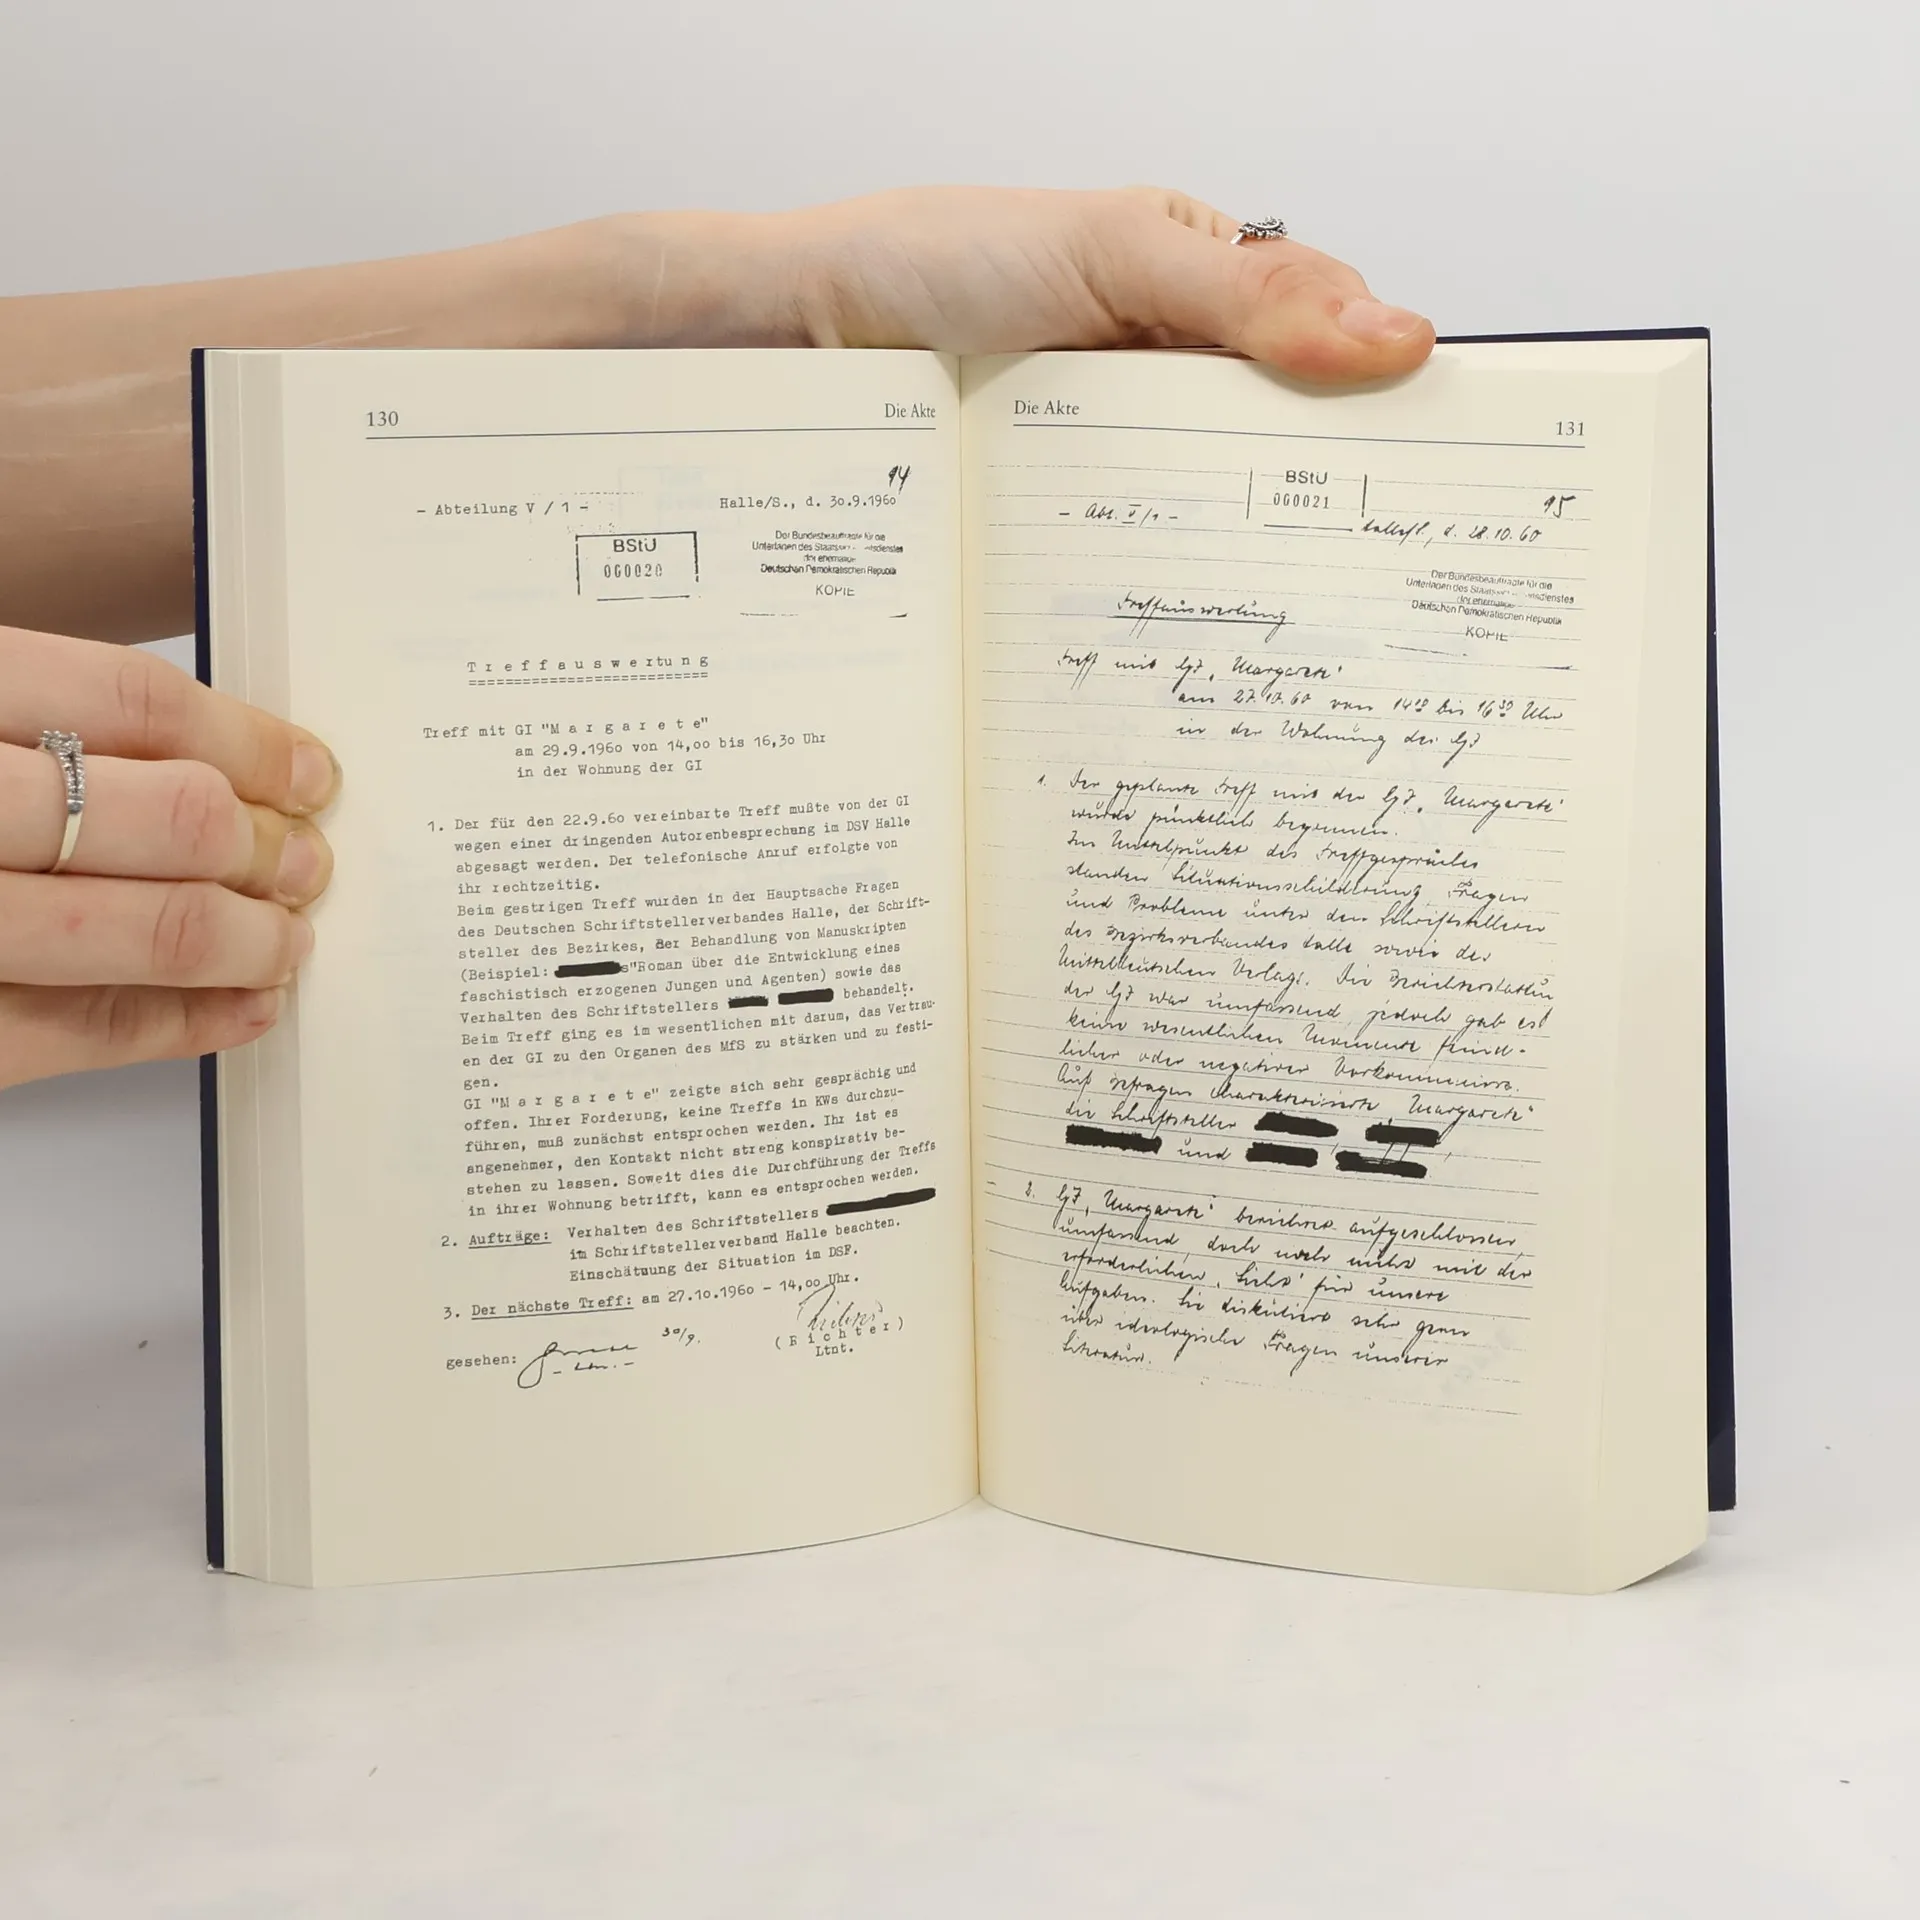 130
Die Akte
94
- Abteilung V / 1 -
Halle/S., d. 30.9.1960
BStU
000020
Der Bundesbeauftragte für die
Unterlagen des Staats
der ehemaligen
Deutschen Demokratischen Republik
KOPIE
Treffauswertung
===========================
Treff mit GI "M a r g a r e t e"
am 29.9.1960 von 14,00 bis 16,30 Uhr
in der Wohnung der GI
1. Der für den 22.9.60 vereinbarte Treff mußte von der GI
wegen einer dringenden Autorenbesprechung im DSV Halle
abgesagt werden. Der telefonische Anruf erfolgte von
ihr rechtzeitig.
Beim gestrigen Treff wurden in der Hauptsache Fragen
des Deutschen Schriftstellerverbandes Halle, der Schrift-
steller des Bezirkes, der Behandlung von Manuskripten
(Beispiel: s"Roman über die Entwicklung eines
faschistisch erzogenen Jungen und Agenten) sowie das
Verhalten des Schriftstellers behandelt.
Beim Treff ging es im wesentlichen mit darum, das Vertrau-
en der GI zu den Organen des MfS zu stärken und zu festi-
gen.
GI "M a r g a r e t e" zeigte sich sehr gesprächig und
offen. Ihrer Forderung, keine Treffs in KWs durchzu-
führen, muß zunächst entsprochen werden. Ihr ist es
angenehmer, den Kontakt nicht streng konspirativ be-
stehen zu lassen. Soweit dies die Durchführung der Treffs
in ihrer Wohnung betrifft, kann es entsprochen werden.
2. Aufträge: Verhalten des Schriftstellers
im Schriftstellerverband Halle beachten.
Einschätzung der Situation im DSF.
3. Der nächste Treff: am 27.10.1960 - 14,00 Uhr.
gesehen: 30/9.
( R i c h t e r )
Ltnt.
Die Akte
131
BStU
000021
95
- Abt. V/1 -
Halle/S., d. 28.10.60
Der Bundesbeauftragte für die
Unterlagen des Staats
der ehemaligen
Deutschen Demokratischen Republik
KOPIE
Treffauswertung
Treff mit GI „Margarete"
am 27.10.60 von 14⁰⁰ bis 16³⁰ Uhr
in der Wohnung der GI
1. Der geplante Treff mit der GI „Margarete"
wurde pünktlich begonnen.
Im Mittelpunkt des Treffgespräches
standen Situationsschilderung, Fragen
und Probleme unter den Schriftstellern
des Bezirksverbandes Halle sowie des
Mitteldeutschen Verlags. Die Berichterstattung
der GI war umfassend, jedoch gab es
keine wesentlichen Momente feind-
licher oder negativer Vorkommnisse.
Auf Befragen charakterisierte „Margarete"
die Schriftsteller
und
2. GI „Margarete" berichtet aufgeschlossen,
umfassend, doch noch nicht mit der
erforderlichen „Liebe" für unsere
Aufgaben. Sie diskutiert sehr gern
über ideologische Fragen unserer
Literatur.